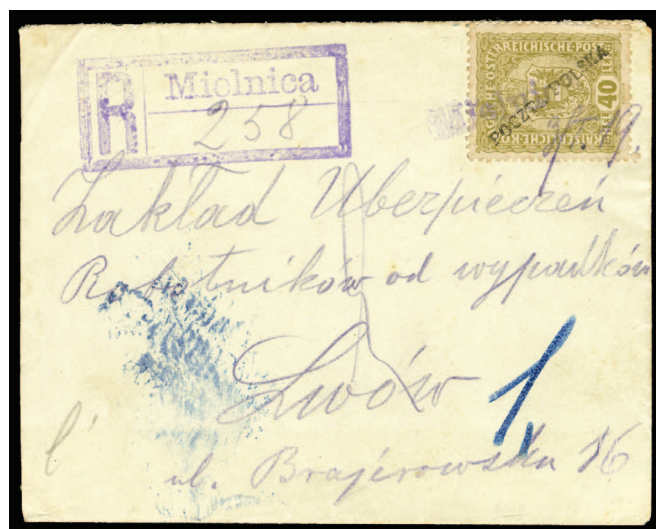 R Mielnica
258
KAISERLICHE KÖNIGLICHE ÖSTERREICHISCHE POST
40 HELLER
POCZTA POLSKA
Zakład Ubezpieczeń
Robotników od wypadków
Lwów 1,
ul. Brajerowska 16